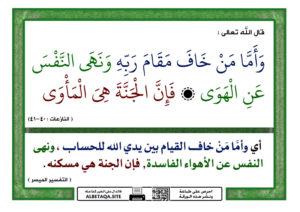 قال الله تعالى :
وَأَمَّا مَنْ خَافَ مَقَامَ رَبِّهِ وَنَهَى النَّفْسَ
عَنِ الْهَوَى ۞ فَإِنَّ الْجَنَّةَ هِيَ الْمَأْوَى
( النازعات : ٤٠-٤١ )
أي وأمَّا مَنْ خاف القيام بين يدي الله للحساب ، ونهى
النفس عن الأهواء الفاسدة، فإن الجنة هي مسكنه.
( التفسير الميسر )
احرص على طباعة
ونشر هذه الورقة
ALBETAQA.SITE